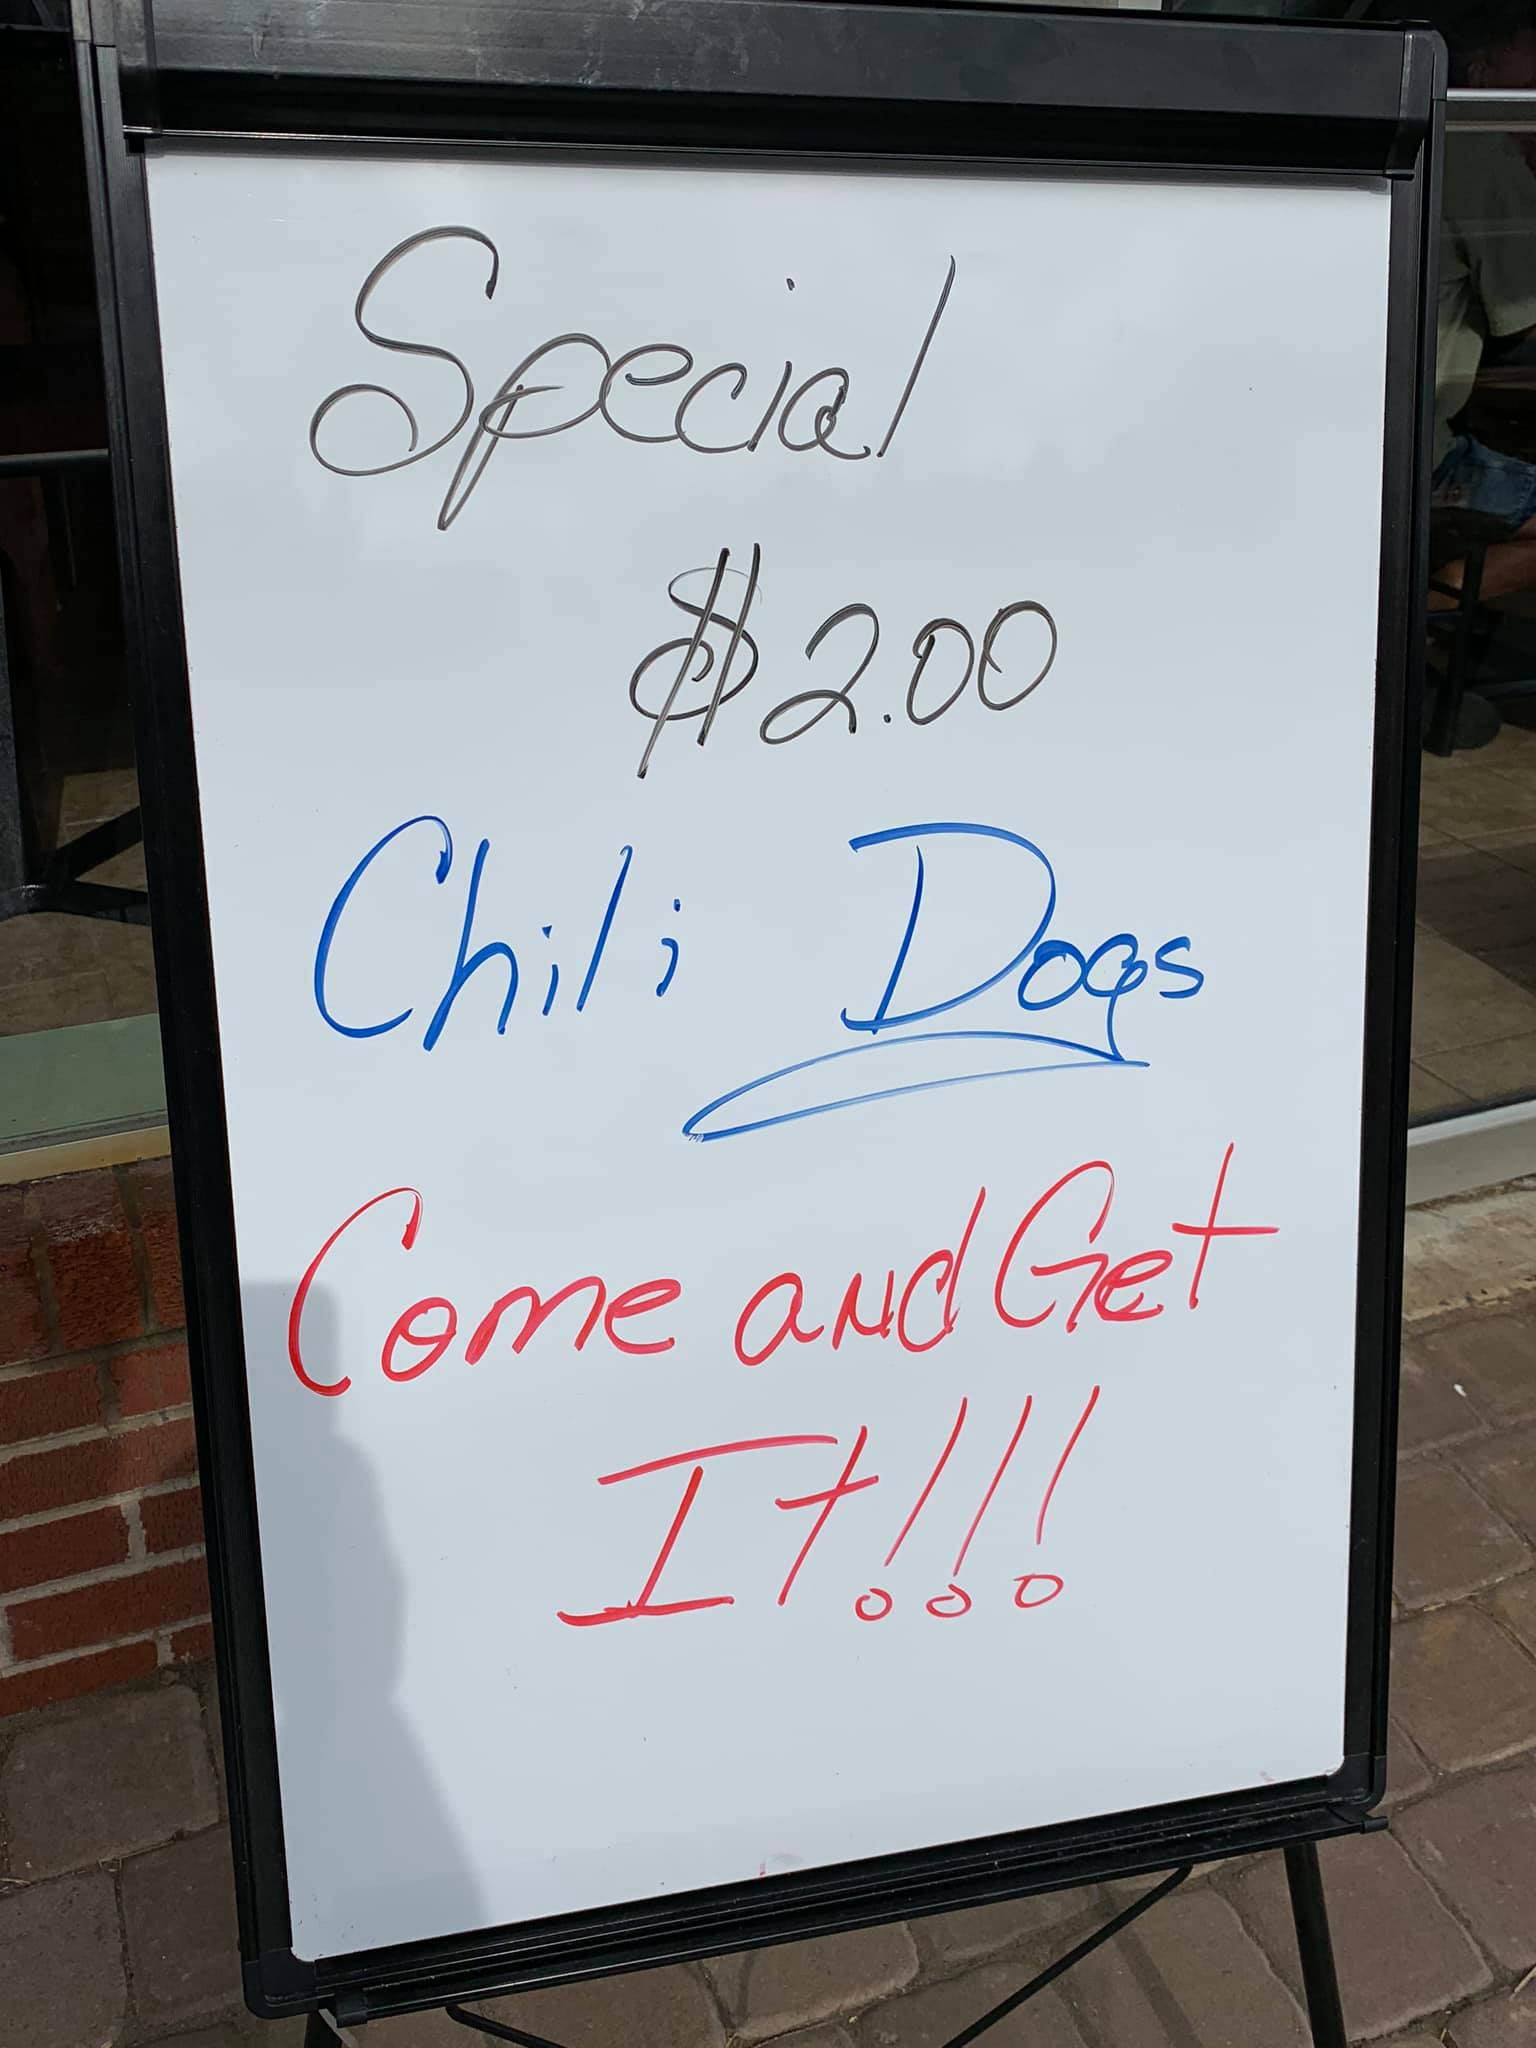 Special
$2.00
Chili Dogs
Come and Get
It!!!